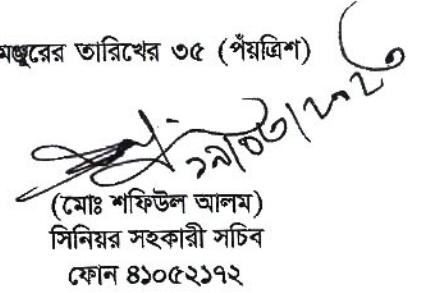 মঞ্জুরের তারিখের ৩৫ (পঁয়ত্রিশ)
(মোঃ শফিউল আলম)
সিনিয়র সহকারী সচিব
ফোন ৪১০৫২১৭২